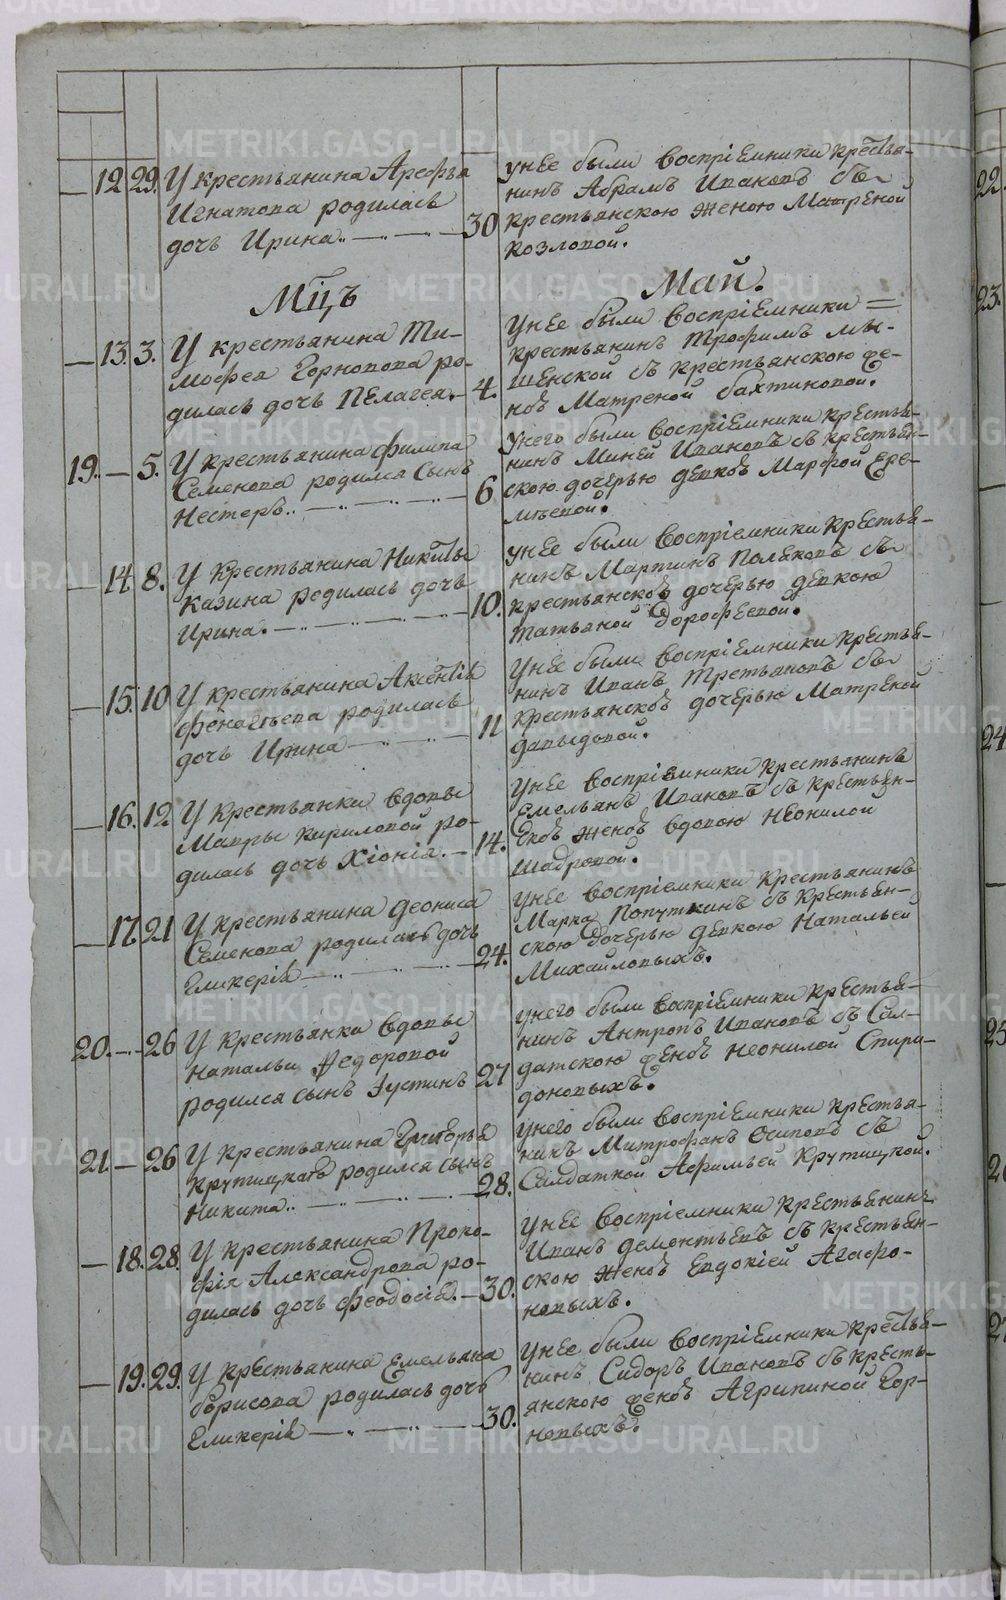 12 29. У крестьянина Арефья
Игнатова родилась
дочь Ирина.
30
унее были воспрiемники крестья-
нинъ Абрамъ Ивановъ съ
крестьянскою женою Матреной
Козловой.
Мцъ Май.
13. 3. У крестьянина Ти-
мофея Горновова ро-
дилась дочь Пелагея.
4.
Унее были воспрiемники
крестьянинъ Трофимъ
съ крестьянскою же-
ной Матреной Бахтиновой.
19. 5. У крестьянина Филипа
Семенова родился сынъ
Нестеръ.
6
Унего были воспрiемники крестья-
нинъ Миней Ивановъ съ крестьян-
скою дочерью девкой Марфой Ере-
меевой.
14. 8. У крестьянина Никиты
Казина родилась дочь
Ирина.
10.
унее были воспрiемники крестья-
нинъ Мартинъ Поляковъ съ
крестьянской дочерью девкою
Татьяной Дорофеевой.
15. 10 У крестьянина Аксентiя
родилась
дочь Ирина
11
Унее были воспрiемники крестья-
нинъ Иванъ Третьяковъ съ
крестьянской дочерью Матреной
Давыдовой.
16. 12 У крестьянки вдовы
Мавры Кириловой ро-
дилась дочь Хiонiя.
14.
Унее воспрiемники крестьянинъ
Емельянъ Ивановъ съ крестьян-
ской женой вдовою Неонилой
Шадровой.
17. 21 У крестьянина Деониса
Семенова родилась дочь
Гликерiя
24.
Унее воспрiемники крестьянинъ
Марка Попуткинъ съ крестьян-
скою дочерью девкою Натальей
Михайловыхъ.
20. 26 У крестьянки вдовы
Натальи Федоровой
родился сынъ Iустинъ
27
унего были воспрiемники крестья-
нинъ Антропъ Ивановъ съ Сал-
датскою женой Неонилой Спири-
доновыхъ.
21. 26 У крестьянина Григорья
Крутицкагѡ родился сынъ
Никита.
28.
унего были воспрiемники крестья-
нинъ Митрофанъ Осиповъ съ
Салдаткой Афимьей Крутицкой.
18. 28. У крестьянина Проко-
фiя Александрова ро-
дилась дочь Феодосiя.
30.
Унее воспрiемники крестьянинъ
Иванъ Дементьевъ съ крестьян-
скою женой Евдокiей Агафо-
новыхъ.
19. 29. У крестьянина Емельяна
Борисова родилась дочь
Гликерiя
30.
Унее были воспрiемники крестья-
нинъ Сидоръ Ивановъ съ кресть-
янскою женой Агрипиной Гор-
новыхъ.
22
23.
24
25
METRIKI.GASO-URAL.RU